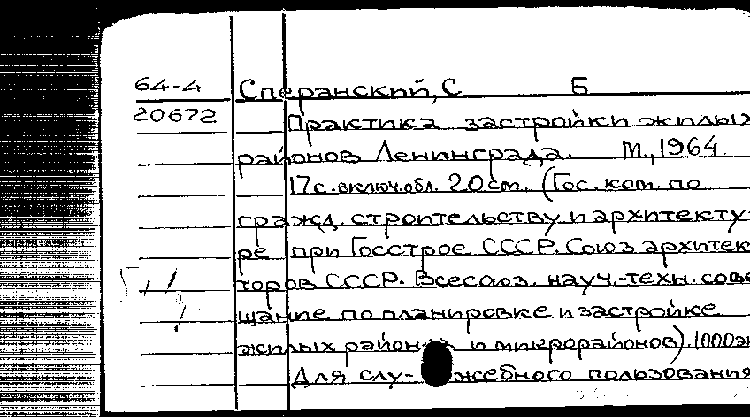 64-4 Сперанский, С Б
20672 Практика застройки жилых
районов Ленинграда. М., 1964.
17с. включ.обл. 20см. (Гос. ком. по
гражд. строительству и архитекту
ре при Госстрое СССР. Союз архитек
торов СССР. Всесоюз. науч.-техн. сове
щание по планировке и застройке
жилых районов и микрорайонов). 1000эк
Для слу- жебного пользования